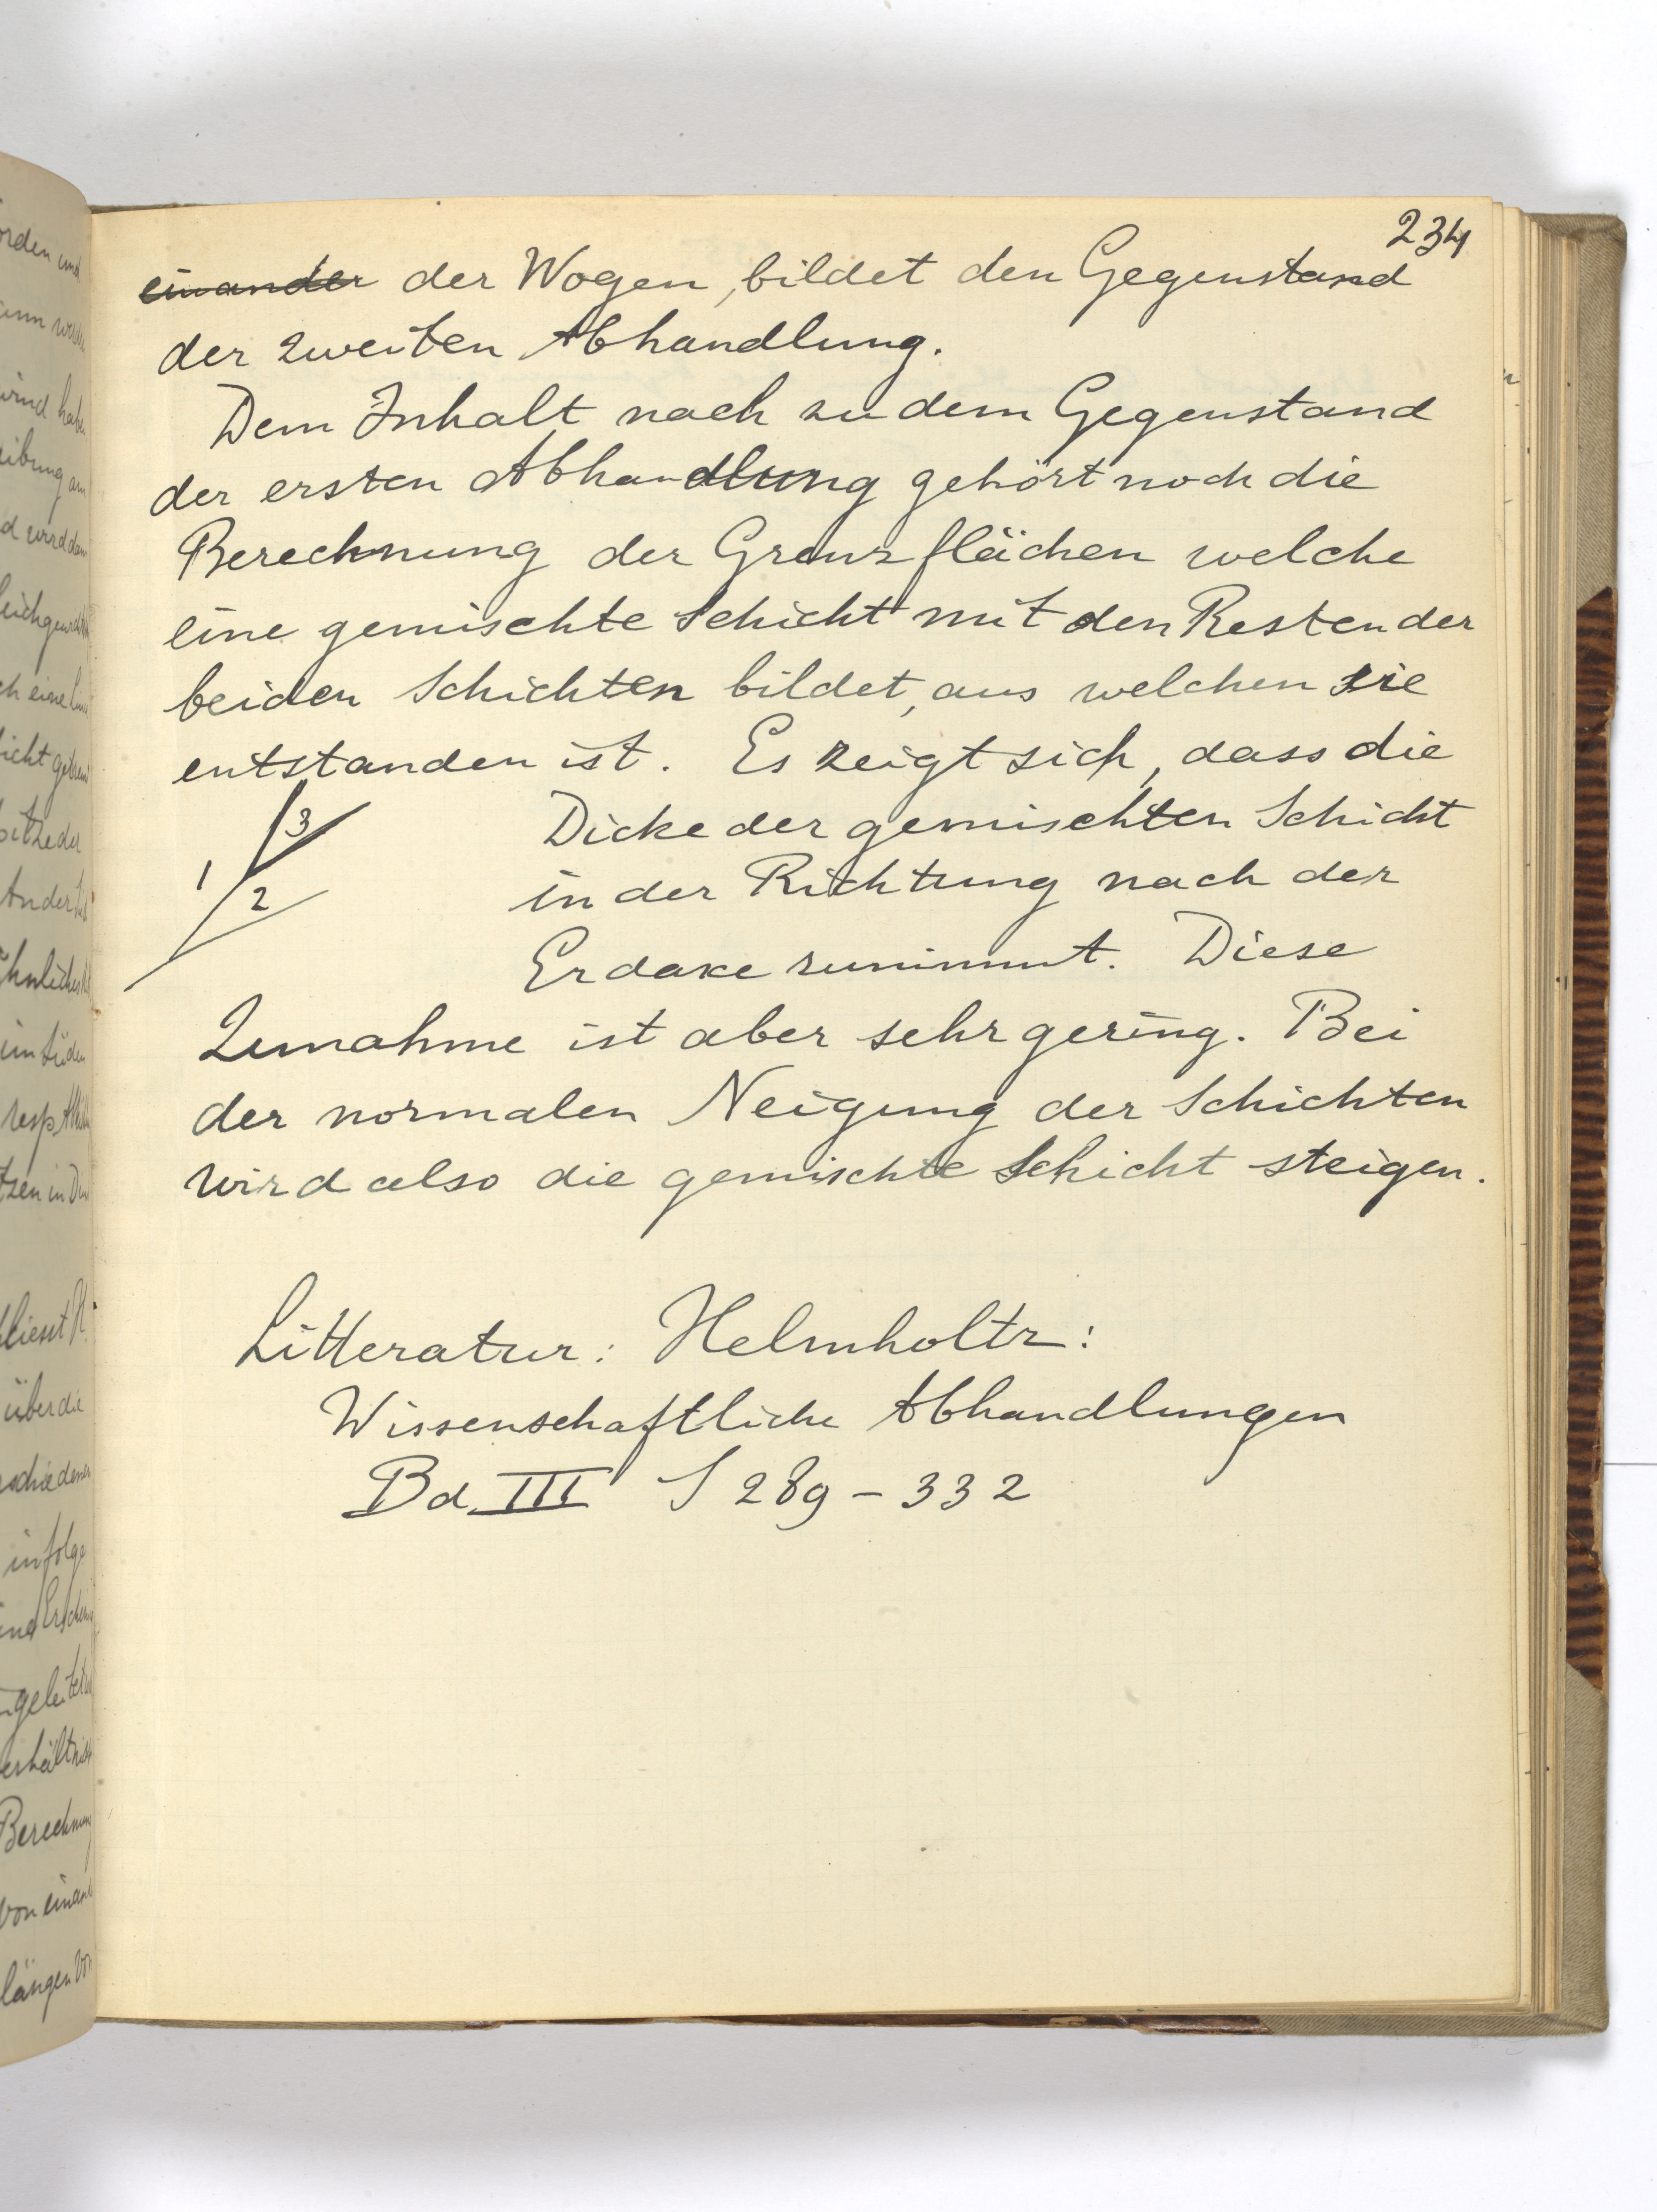 234
einander der Wogen, bildet den Gegenstand
der zweiten Abhandlung.
Dem Inhalt nach zu dem Gegenstand
der ersten Abhandlung gehört noch die
Berechnung der Grenzflächen welche
eine gemischte Schicht mit den Resten der
beiden Schichten bildet, aus welchen sie
entstanden ist. Es zeigt sich, dass die
Dicke der gemischten Schicht
in der Richtung nach der
Erdaxe zunimmt. Diese
1 3
2
Zunahme ist aber sehr gering. Bei
der normalen Neigung der Schichten
wird also die gemischte Schicht steigen.
Litteratur: Helmholtz:
Wissenschaftliche Abhandlungen
Bd. III S 289 - 332